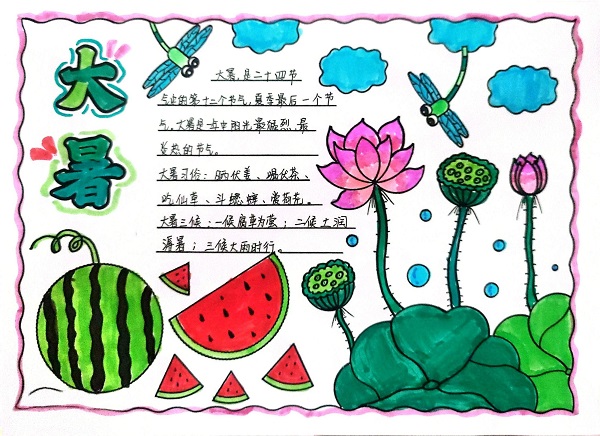 大暑
大暑,是二十四节
气中的第十二个节气,夏季最后一个节
气,大暑是一年中阳光最猛烈、最
炎热的节气。
大暑习俗:晒伏姜、喝伏茶、
吃仙草、斗蟋蟀、赏荷花。
大暑三候:一候腐草为萤;二候土润
溽暑;三候大雨时行。